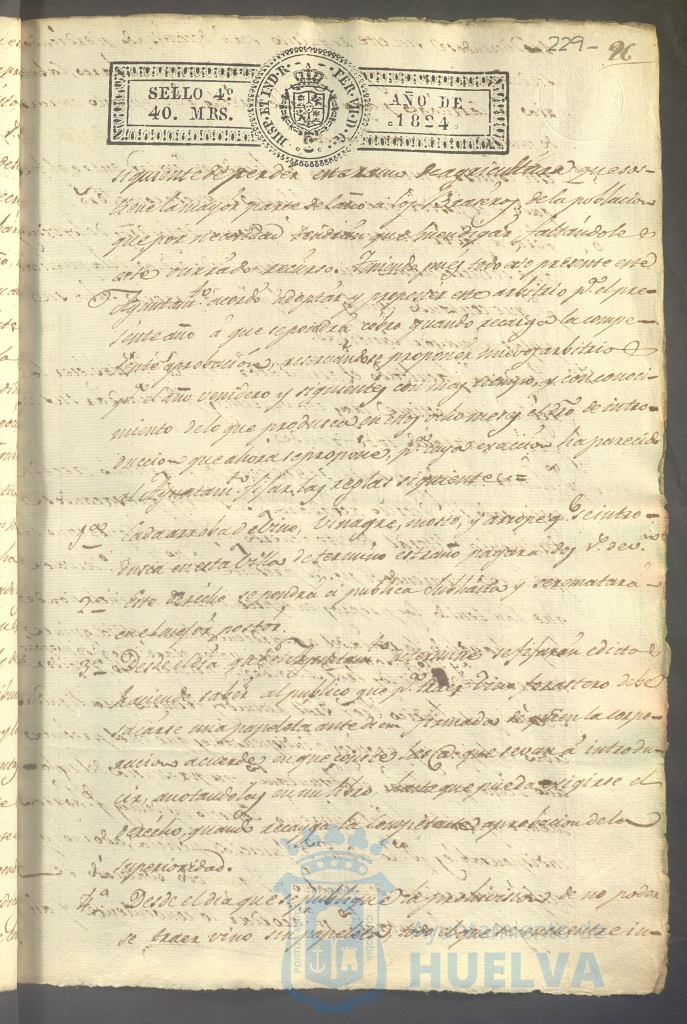 229- 26
SELLO 4º
40. MRS.
HISP. ET IND. R. FER. VII. D. G.
AÑO DE
1824.
siguiente de perder en el ramo de agricultura que sos-
tiene la mayor parte del año a los Braseros de la poblacion
que por necesidad tendran que mendigar faltandole
este recurso. Teniendo pues todo esto presente este
Ayuntamto. acordó adoptar y proponer este arbitrio pª. el pre-
sente año á que se pondrá cobro quando recaiga la compe-
tente aprobacion, reservandose proponer nuevo arbitrio
pª. el año venidero y siguientes con mas tiempo, y con conoci-
miento de lo que produzca en estos ocho meses el dro. de intro-
duccion que ahora se propone, pª. cuya exaccion ha parecido
al Ayuntamto. fijar las reglas siguientes=
1ª. Cada arroba de Vino, Vinagre, mosto, y arrope qe. se intro-
dusca en esta Villa de termino estraño pagara dos rs. de vn.
2ª. Este derecho se pondrá á publica subhasta y se rematará
en el mejor postor.
3ª. Desde el dia que el Ayuntamto. determine se fijarán edictos
haciendo saber al publico que pª. traer vino forastero debe
sacarse una papeleta ante dicm firmada de quien la corpo-
racion acuerde en que conste las @s. que se van á introdu-
cir, anotandolas en un libro para que pueda exigirse el
derecho, quando recayga la competente aprobacion de la
superioridad.
4ª. Desde el dia que se publique la prohivision de no poder
se traer vino sin papeleta, todo el que se encuentre in-
Ayuntamiento de
HUELVA